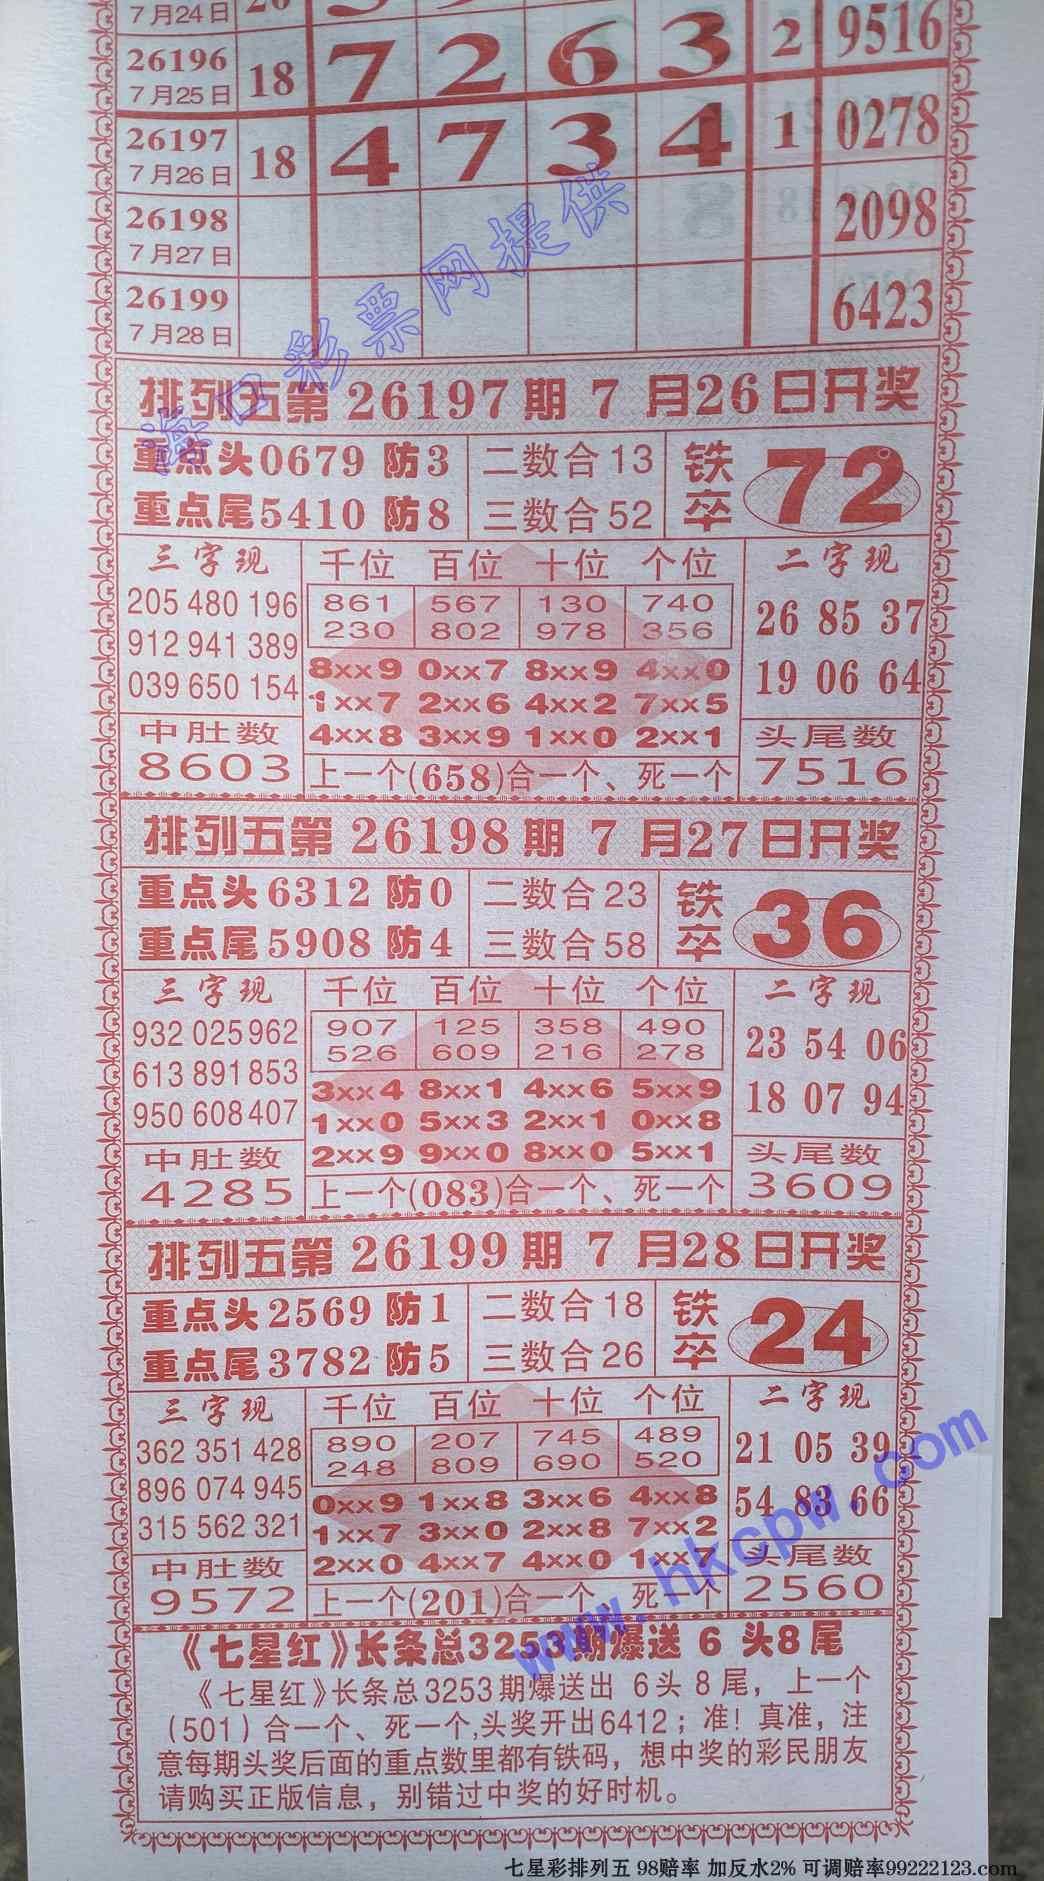 7月24日
26196 18 7 2 6 3 2 9516
7月25日
26197 18 4 7 3 4 1 0278
7月26日
26198 2098
7月27日
26199 6423
7月28日
海口彩票网提供
排列五第26197期7月26日开奖
重点头0679 防3 二数合13 铁卒 72
重点尾5410 防8 三数合52
三字现 千位 百位 十位 个位 二字现
205 480 196 861 567 130 740 26 85 37
912 941 389 230 802 978 356
039 650 154 8xx9 0xx7 8xx9 4xx0 19 06 64
1xx7 2xx6 4xx2 7xx5
中肚数 4xx8 3xx9 1xx0 2xx1 头尾数
8603 上一个(658)合一个、死一个 7516
排列五第26198期7月27日开奖
重点头6312 防0 二数合23 铁卒 36
重点尾5908 防4 三数合58
三字现 千位 百位 十位 个位 二字现
932 025 962 907 125 358 490 23 54 06
613 891 853 526 609 216 278
950 608 407 3xx4 8xx1 4xx6 5xx9 18 07 94
1xx0 5xx3 2xx1 0xx8
中肚数 2xx9 9xx0 8xx0 5xx1 头尾数
4285 上一个(083)合一个、死一个 3609
排列五第26199期7月28日开奖
重点头2569 防1 二数合18 铁卒 24
重点尾3782 防5 三数合26
三字现 千位 百位 十位 个位 二字现
362 351 428 890 207 745 489 21 05 39
896 074 945 248 809 690 520
315 562 321 0xx9 1xx8 3xx6 4xx8 54 83 66
1xx7 3xx0 2xx8 7xx2
中肚数 2xx0 4xx7 4xx0 1xx7 头尾数
9572 上一个(201)合一个、死一个 2560
www.hkcpw.com
《七星红》长条总3253期爆送 6 头8尾
《七星红》长条总3253期爆送出 6头8尾，上一个
(501)合一个、死一个,头奖开出6412；准！真准，注
意每期头奖后面的重点数里都有铁码，想中奖的彩民朋友
请购买正版信息，别错过中奖的好时机。
七星彩排列五 98赔率 加反水2% 可调赔率99222123.com